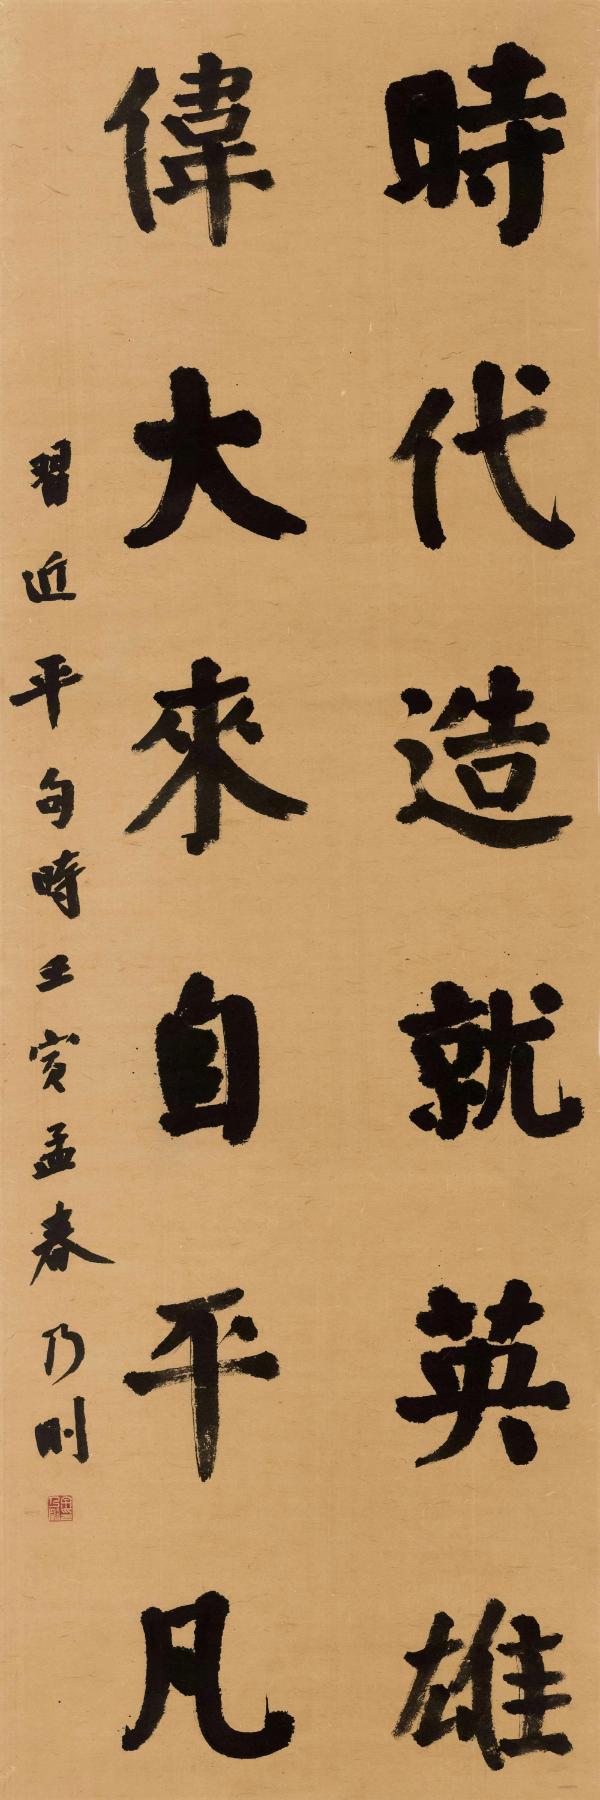 時代造就英雄
偉大來自平凡
習近平句時壬寅孟春乃則